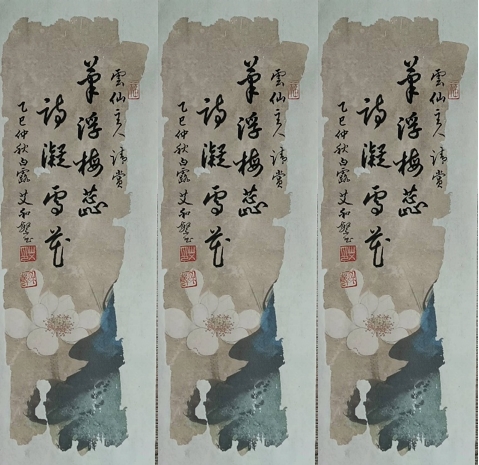 雲仙主人 清賞
筆浮梅蕊
詩凝雪花
乙巳仲秋白露 艾和
雲仙主人 清賞
筆浮梅蕊
詩凝雪花
乙巳仲秋白露 艾和
雲仙主人 清賞
筆浮梅蕊
詩凝雪花
乙巳仲秋白露 艾和